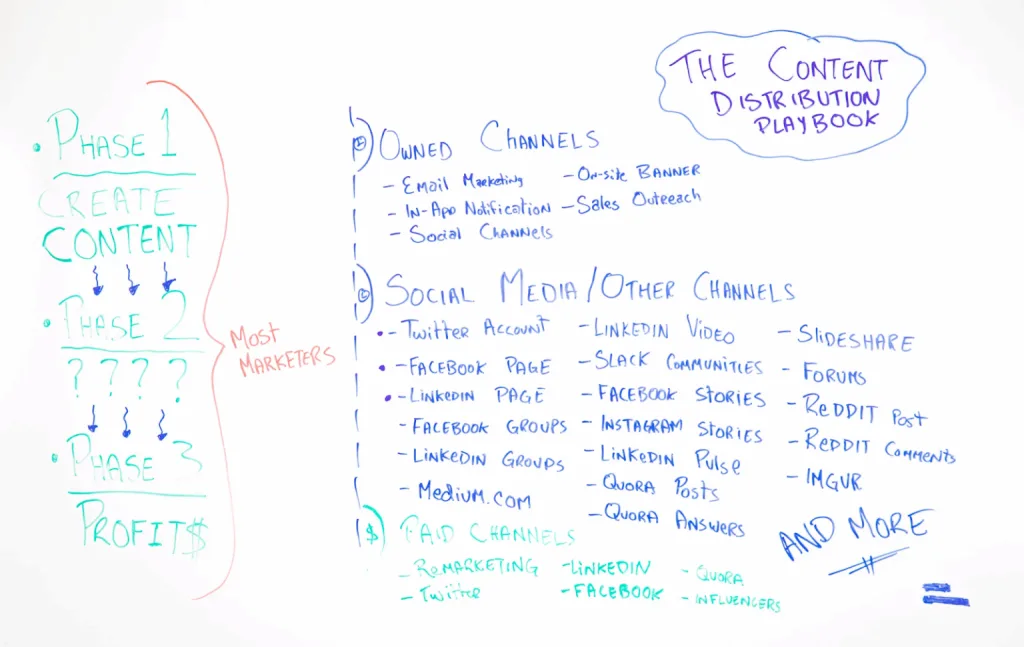 THE CONTENT
DISTRIBUTION
PLAYBOOK
• PHASE 1
CREATE
CONTENT
• PHASE 2
? ? ? ?
• PHASE 3
PROFIT$
MOST
MARKETERS
OWNED CHANNELS
- EMAIL MARKETING
- IN-APP NOTIFICATION
- SOCIAL CHANNELS
- ON-SITE BANNER
- SALES OUTREACH
SOCIAL MEDIA/OTHER CHANNELS
• - TWITTER ACCOUNT
• - FACEBOOK PAGE
• - LINKEDIN PAGE
- FACEBOOK GROUPS
- LINKEDIN GROUPS
- MEDIUM.COM
- LINKEDIN VIDEO
- SLACK COMMUNITIES
- FACEBOOK STORIES
- INSTAGRAM STORIES
- LINKEDIN PULSE
- QUORA POSTS
- QUORA ANSWERS
- SLIDESHARE
- FORUMS
- REDDIT POST
- REDDIT COMMENTS
- IMGUR
AND MORE
$) PAID CHANNELS
- REMARKETING
- TWITTER
- LINKEDIN
- FACEBOOK
- QUORA
- INFLUENCERS